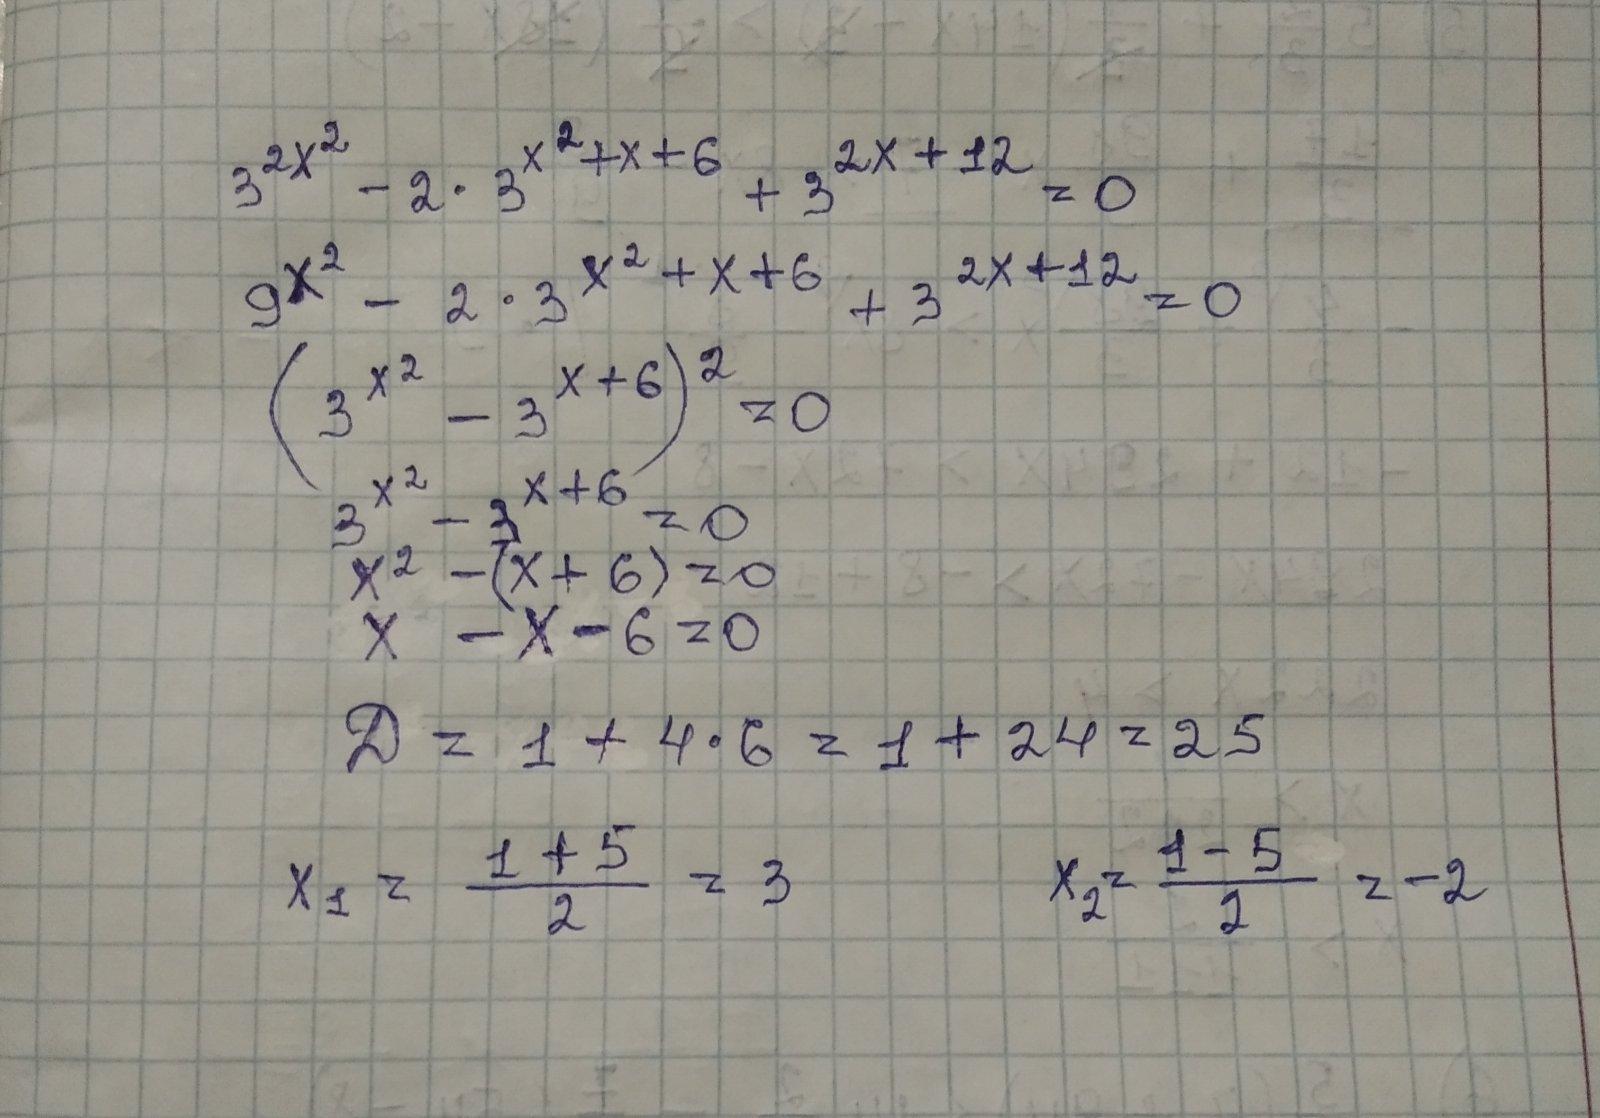 3^{2x^2} - 2 · 3^{x^2+x+6} + 3^{2x+12} = 0
9^{x^2} - 2 · 3^{x^2+x+6} + 3^{2x+12} = 0
(3^{x^2} - 3^{x+6})^2 = 0
3^{x^2} - 3^{x+6} = 0
x^2 - (x + 6) = 0
x - x - 6 = 0
D = 1 + 4 · 6 = 1 + 24 = 25
x_1 = \frac{1+5}{2} = 3    x_2 = \frac{1-5}{2} = -2